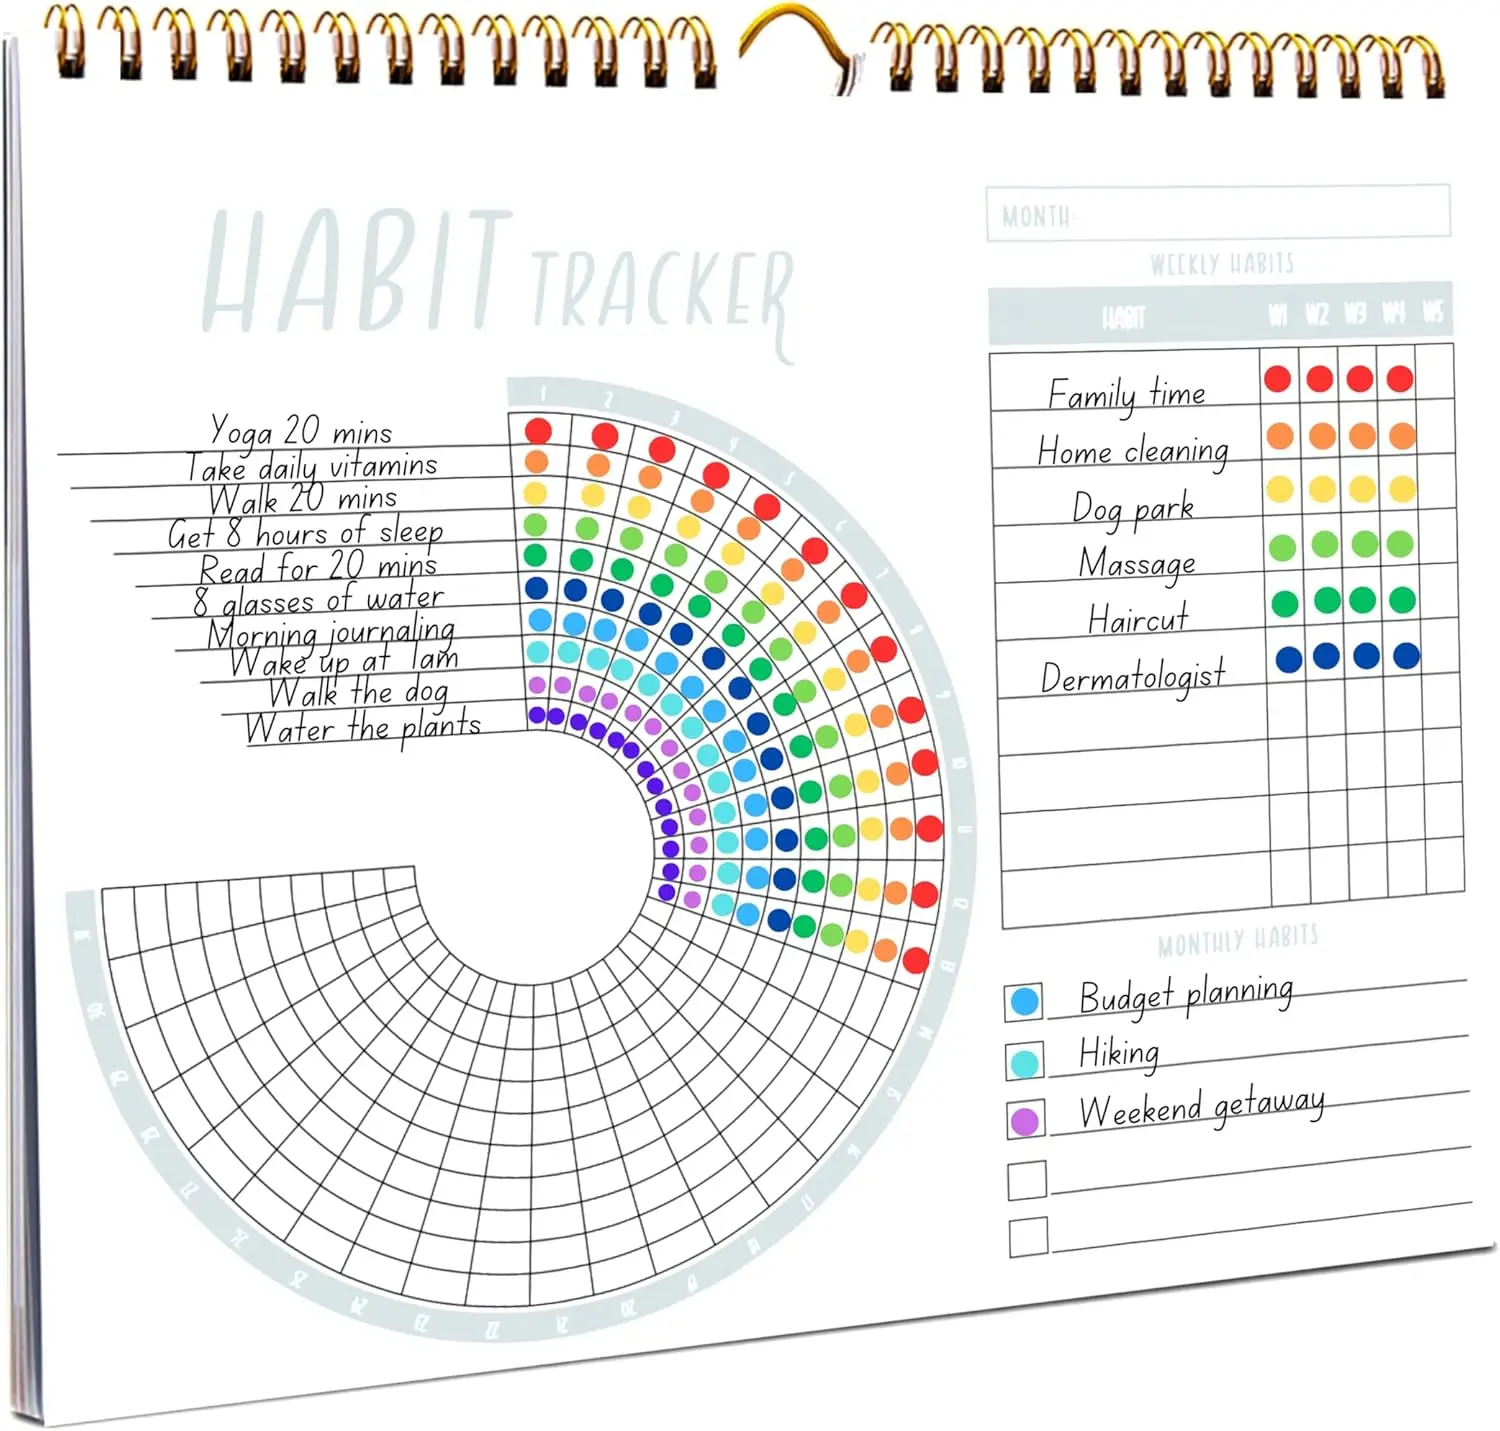 HABIT TRACKER
Yoga 20 mins
Take daily vitamins
Walk 20 mins
Get 8 hours of sleep
Read for 20 mins
8 glasses of water
Morning journaling
Wake up at 1am
Walk the dog
Water the plants
1 2 3 4 5 6 7 8 9 10 11
20 21 22 23
MONTH:
WEEKLY HABITS
HABIT W1 W2 W3 W4 W5
Family time
Home cleaning
Dog park
Massage
Haircut
Dermatologist
MONTHLY HABITS
Budget planning
Hiking
Weekend getaway